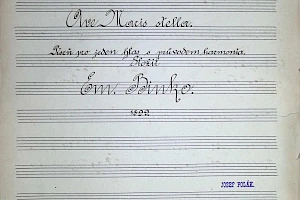 Ave Maris stella.
Píseň pro jeden hlas s průvodem harmonia.
Složil
Em. Binko.
1899.
JOSEF POLÁK.